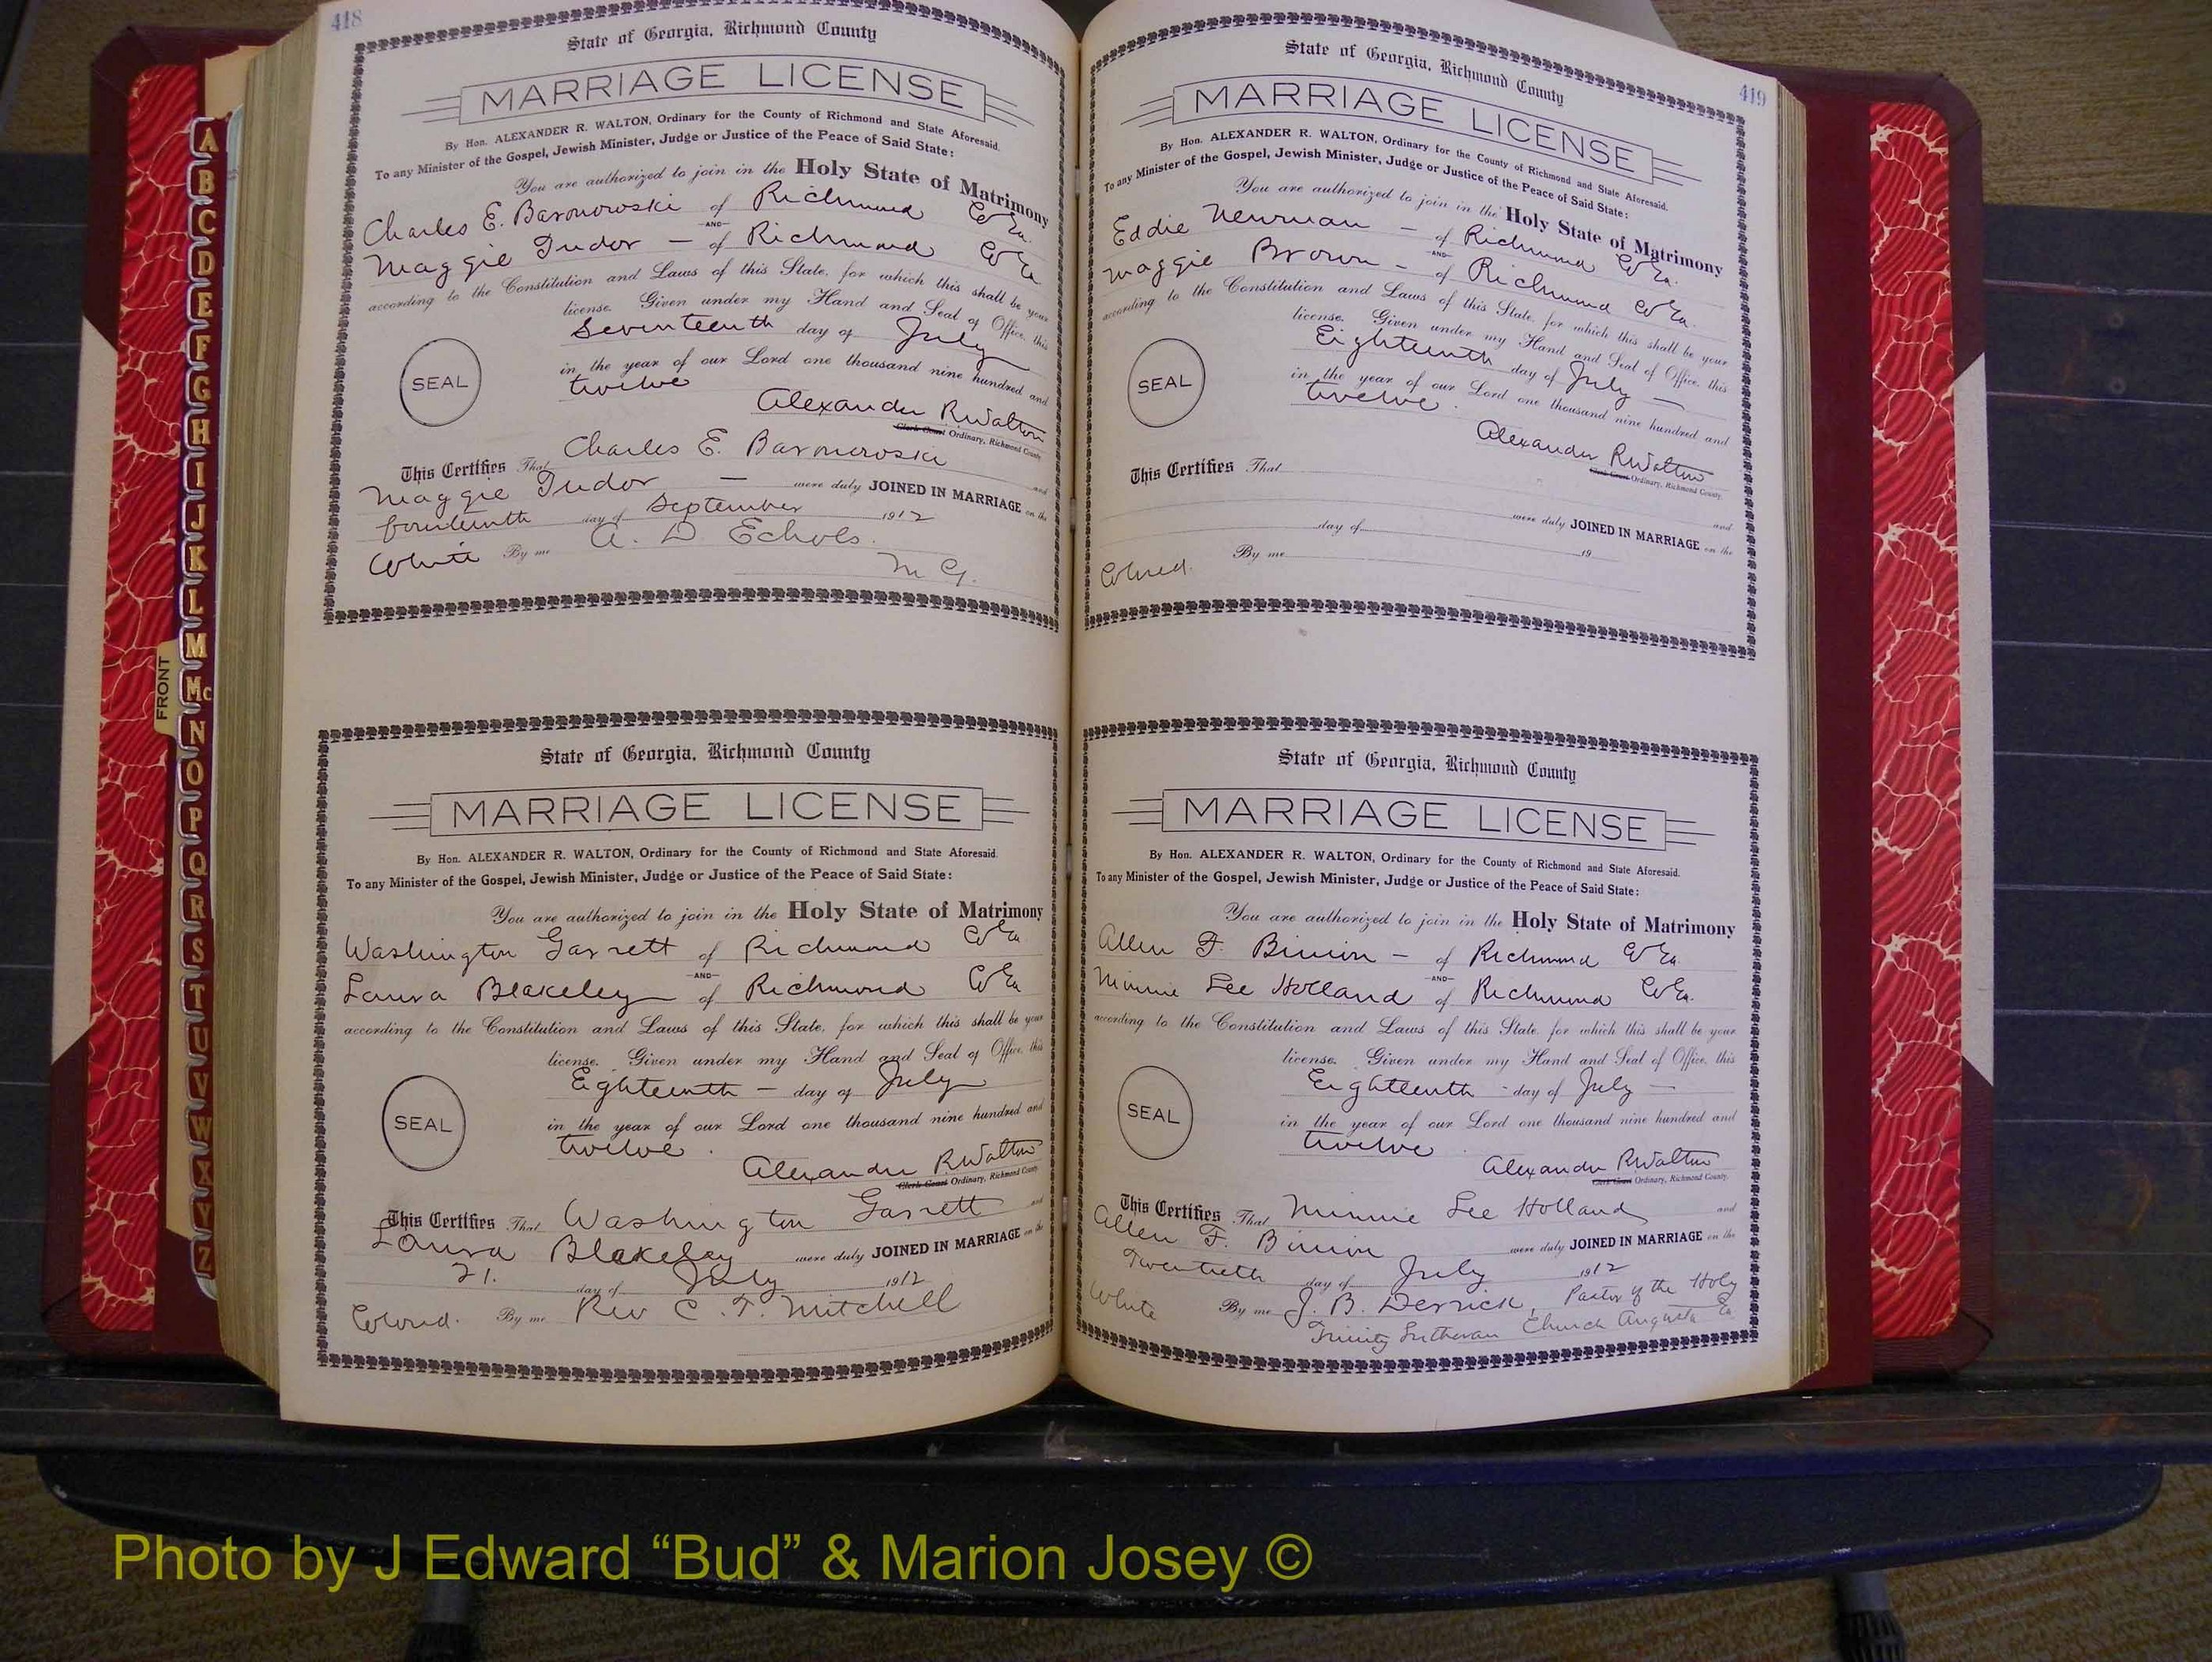 418
State of Georgia, Richmond County
MARRIAGE LICENSE
By Hon. ALEXANDER R. WALTON, Ordinary for the County of Richmond and State Aforesaid.
To any Minister of the Gospel, Jewish Minister, Judge or Justice of the Peace of Said State:
You are authorized to join in the Holy State of Matrimony
Charles E. Baronowski of Richmond Co Ga.
AND
Maggie Tudor — of Richmond Co Ga.
according to the Constitution and Laws of this State, for which this shall be your
license. Given under my Hand and Seal of Office, this
Seventeenth day of July
in the year of our Lord one thousand nine hundred and
SEAL
twelve
Alexander R Walton
Clerk Court Ordinary, Richmond County.
This Certifies That Charles E. Baronowski and
Maggie Tudor — were duly JOINED IN MARRIAGE on the
fourteenth day of September 1912
White By me A. D Echols.
M G.
State of Georgia, Richmond County
MARRIAGE LICENSE
By Hon. ALEXANDER R. WALTON, Ordinary for the County of Richmond and State Aforesaid.
To any Minister of the Gospel, Jewish Minister, Judge or Justice of the Peace of Said State:
You are authorized to join in the Holy State of Matrimony
Washington Garrett of Richmond Co Ga
AND
Laura Blakeley of Richmond Co Ga
according to the Constitution and Laws of this State, for which this shall be your
license. Given under my Hand and Seal of Office, this
Eighteenth — day of July
in the year of our Lord one thousand nine hundred and
SEAL
twelve.
Alexander R Walton
Clerk Court Ordinary, Richmond County.
This Certifies That Washington Garrett and
Laura Blakeley were duly JOINED IN MARRIAGE on the
21. day of July 1912
Colored. By me Rev C. T. Mitchell
419
State of Georgia, Richmond County
MARRIAGE LICENSE
By Hon. ALEXANDER R. WALTON, Ordinary for the County of Richmond and State Aforesaid.
To any Minister of the Gospel, Jewish Minister, Judge or Justice of the Peace of Said State:
You are authorized to join in the Holy State of Matrimony
Eddie Newman — of Richmond Co Ga.
AND
Maggie Brown — of Richmond Co Ga.
according to the Constitution and Laws of this State, for which this shall be your
license. Given under my Hand and Seal of Office, this
Eighteenth day of July —
in the year of our Lord one thousand nine hundred and
SEAL
twelve.
Alexander R Walton
Clerk Court Ordinary, Richmond County.
This Certifies That
and
were duly JOINED IN MARRIAGE on the
day of 19
Colored. By me
State of Georgia, Richmond County
MARRIAGE LICENSE
By Hon. ALEXANDER R. WALTON, Ordinary for the County of Richmond and State Aforesaid.
To any Minister of the Gospel, Jewish Minister, Judge or Justice of the Peace of Said State:
You are authorized to join in the Holy State of Matrimony
Allen F. Binion — of Richmond Co Ga
AND
Minnie Lee Holland of Richmond Co Ga.
according to the Constitution and Laws of this State, for which this shall be your
license. Given under my Hand and Seal of Office, this
Eighteenth - day of July —
in the year of our Lord one thousand nine hundred and
SEAL
twelve.
Alexander R Walton
Clerk Court Ordinary, Richmond County.
This Certifies That Minnie Lee Holland and
Allen F. Binion were duly JOINED IN MARRIAGE on the
Twentieth day of July 1912
White By me J. B. Derrick, Pastor of the Holy
Trinity Lutheran Church Augusta Ga
A
B
C
D
E
F
G
H
I
J
K
L
M
Mc
N
O
P
Q
R
S
T
U
V
W
X
Y
Z
FRONT
Photo by J Edward “Bud” & Marion Josey ©